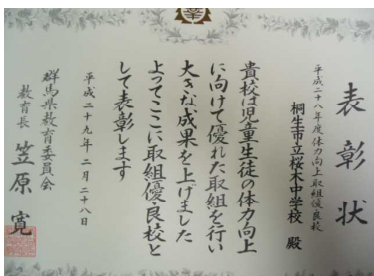 表彰状
平成二十八年度体力向上取組優良校
桐生市立桜木中学校 殿
貴校は児童生徒の体力向上
に向けて優れた取組を行い
大きな成果を上げました
よってここに取組優良校と
して表彰します
平成二十九年二月二十八日
群馬県教育委員会
教育長 笠原 寛